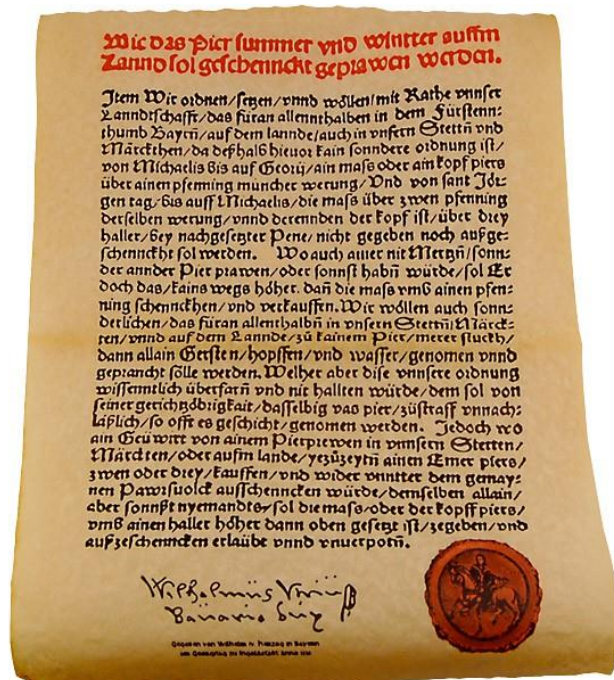 Wie das Pier summer vnd wintter auffm
Lannd sol geschennckt geprawen werden.
Item Wir ordnen/setzen/vnnd wöllen/mit Rathe vnnser
Lanndtschafft/das füran allennthalben in dem Fürstenn-
thumb Bayrn̄/auf dem lannde/auch in vnsern Stettn̄ vnd
Märckthen/da deßhalb hieuor kain sonndere ordnung ist/
von Michaelis bis auf Georij/ain mass oder ain kopf piers
über ainen pfenning müncher werung/Vnd von sant Jör-
gen tag/bis auff Michaelis/die mass über zwen pfenning
derselben werung/vnnd derennden der kopf ist/über drey
haller/bey nachgesetzter Pene/nicht gegeben noch aufge-
schennckht sol werden. Wo auch ainer nit Mertzn̄/sonn-
der annder Pier prawen/oder sonnst habn̄ würde/sol Er
doch das/kains wegs höher. dan̄ die mass vmb ainen pfen-
ning schennckhen/vnd verkauffen. Wir wöllen auch sonn-
derlichen/das füran allenthalbn̄ in vnsern Stettn̄/Märck-
ten/vnnd auf dem Lannde/zů kainem Pier/merer stuckh/
dann allain Gersten/hopffen/vnd wasser/genomen vnnd
gepraucht sölle werden. Welher aber dise vnnsere ordnung
wissenntlich überfarn̄ vnd nit hallten würde/dem sol von
seiner gerichtzöbrigkait/dasselbig vas pier/zůstraff vnnach-
läßlich/so offt es geschicht/genomen werden. Jedoch wo
ain Geüwirt von ainem Pierprewen in vnnsern Stetten/
Märckten/oder aufm lande/yezůzeytn̄ ainen Emer piers/
zwen oder drey/kauffen/vnd wider vnntter dem gemay-
nen Pawrsuolck ausschenncken würde/demselben allain/
aber sonnßt nyemandts/sol die mass/oder der kopff piers/
vmb ainen haller höher dann oben gesetzt ist/zegeben/vnd
aufzeschenncken erlaubt vnnd vnuerpotn̄.
Gegeben von Wilhelm IV. Herzog in Bayern
am Georgitag zu Ingolstadt Anno 1516